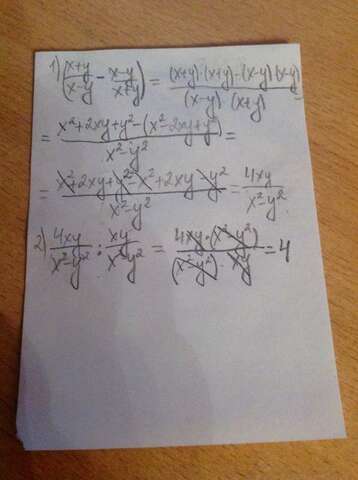 1) (x+y/x-y - x-y/x+y) = (x+y)·(x+y)-(x-y)(x-y)/(x-y)·(x+y) =
= x²+2xy+y²-(x²-2xy+y²)/x²-y² =
= x²+2xy+y²-x²+2xy-y²/x²-y² = 4xy/x²-y²
2) 4xy/x²-y² : xy/x²-y² = 4xy·(x²-y²)/(x²-y²)·xy = 4